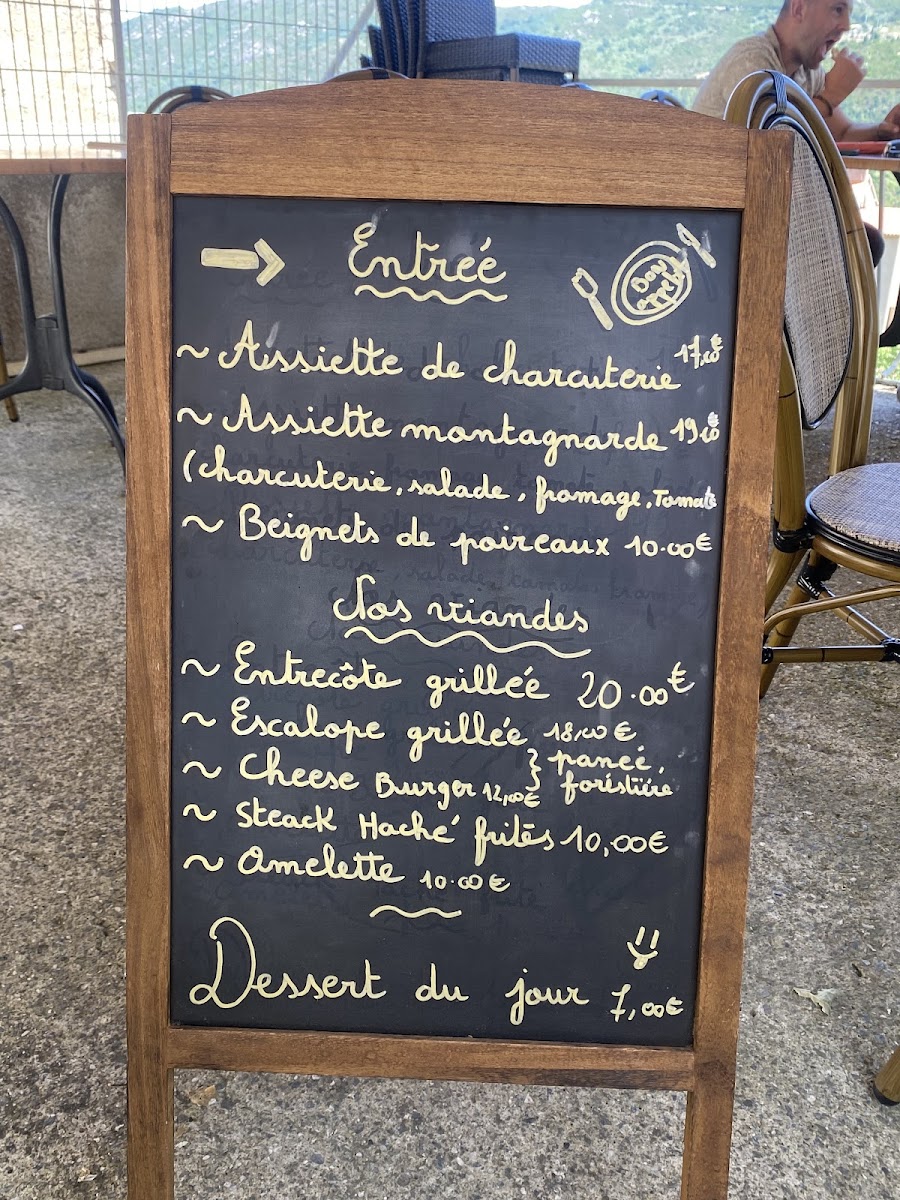 Entréé
Bon
appetit
~ Assiette de charcuterie 17,00€
~ Assiette montagnarde 19,00€
(charcuterie, salade, fromage, Tomate
~ Beignets de poireaux 10.00€
Nos viandes
~ Entrecôte grillée 20.00€
~ Escalope grillée 18,00€
} panéé,
foréstiére
~ Cheese Burger 12,00€
~ Steack Haché frités 10,00€
~ Omelette 10.00€
Dessert du jour 7,00€